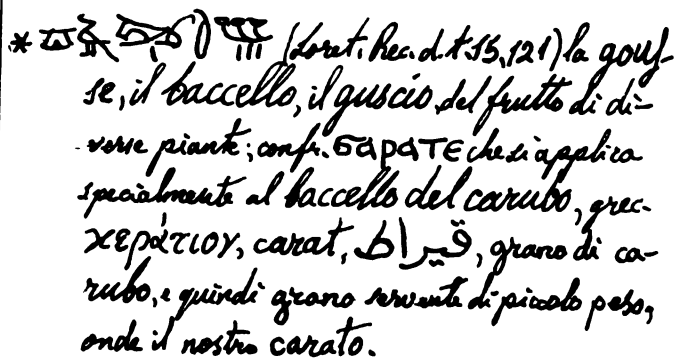 * (Loret, Rec. d. t 15, 121) la gous-
se, il baccello, il guscio del frutto di di-
verse piante; confr. ϬΑΡΑΤΕ che si applica
specialmente al baccello del carubo, grec.
κεράτιον, carat, قيراط, grano di ca-
rubo, e quindi grano servente di piccolo peso,
onde il nostro carato.